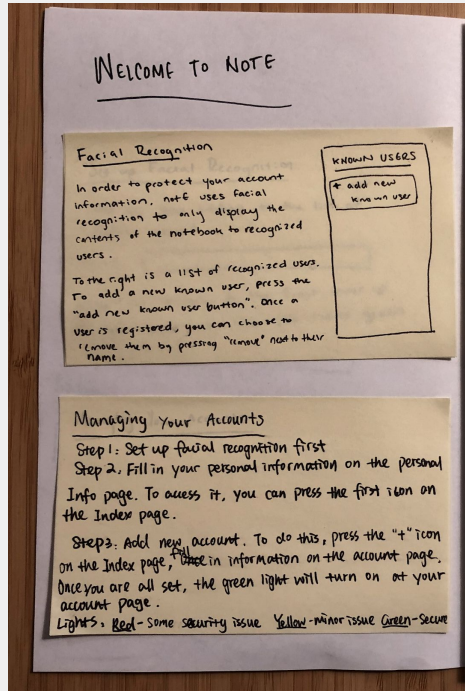 WELCOME TO NOTE
Facial Recognition
In order to protect your account
information, note uses facial
recognition to only display the
contents of the notebook to recognized
users.
To the right is a list of recognized users.
To add a new known user, press the
"add new known user button". Once a
user is registered, you can choose to
remove them by pressing "remove" next to their
name.
KNOWN USERS
+ add new
known user
Managing Your Accounts
Step 1: Set up facial recogntion first
Step 2. Fill in your personal information on the personal
Info page. To access it, you can press the first icon on
the Index page.
Step 3: Add new account. To do this, press the "+" icon
on the Index page, fill in information on the account page.
Once you are all set, the green light will turn on at your
account page.
Lights: Red - Some security issue Yellow - minor issue Green - Secure